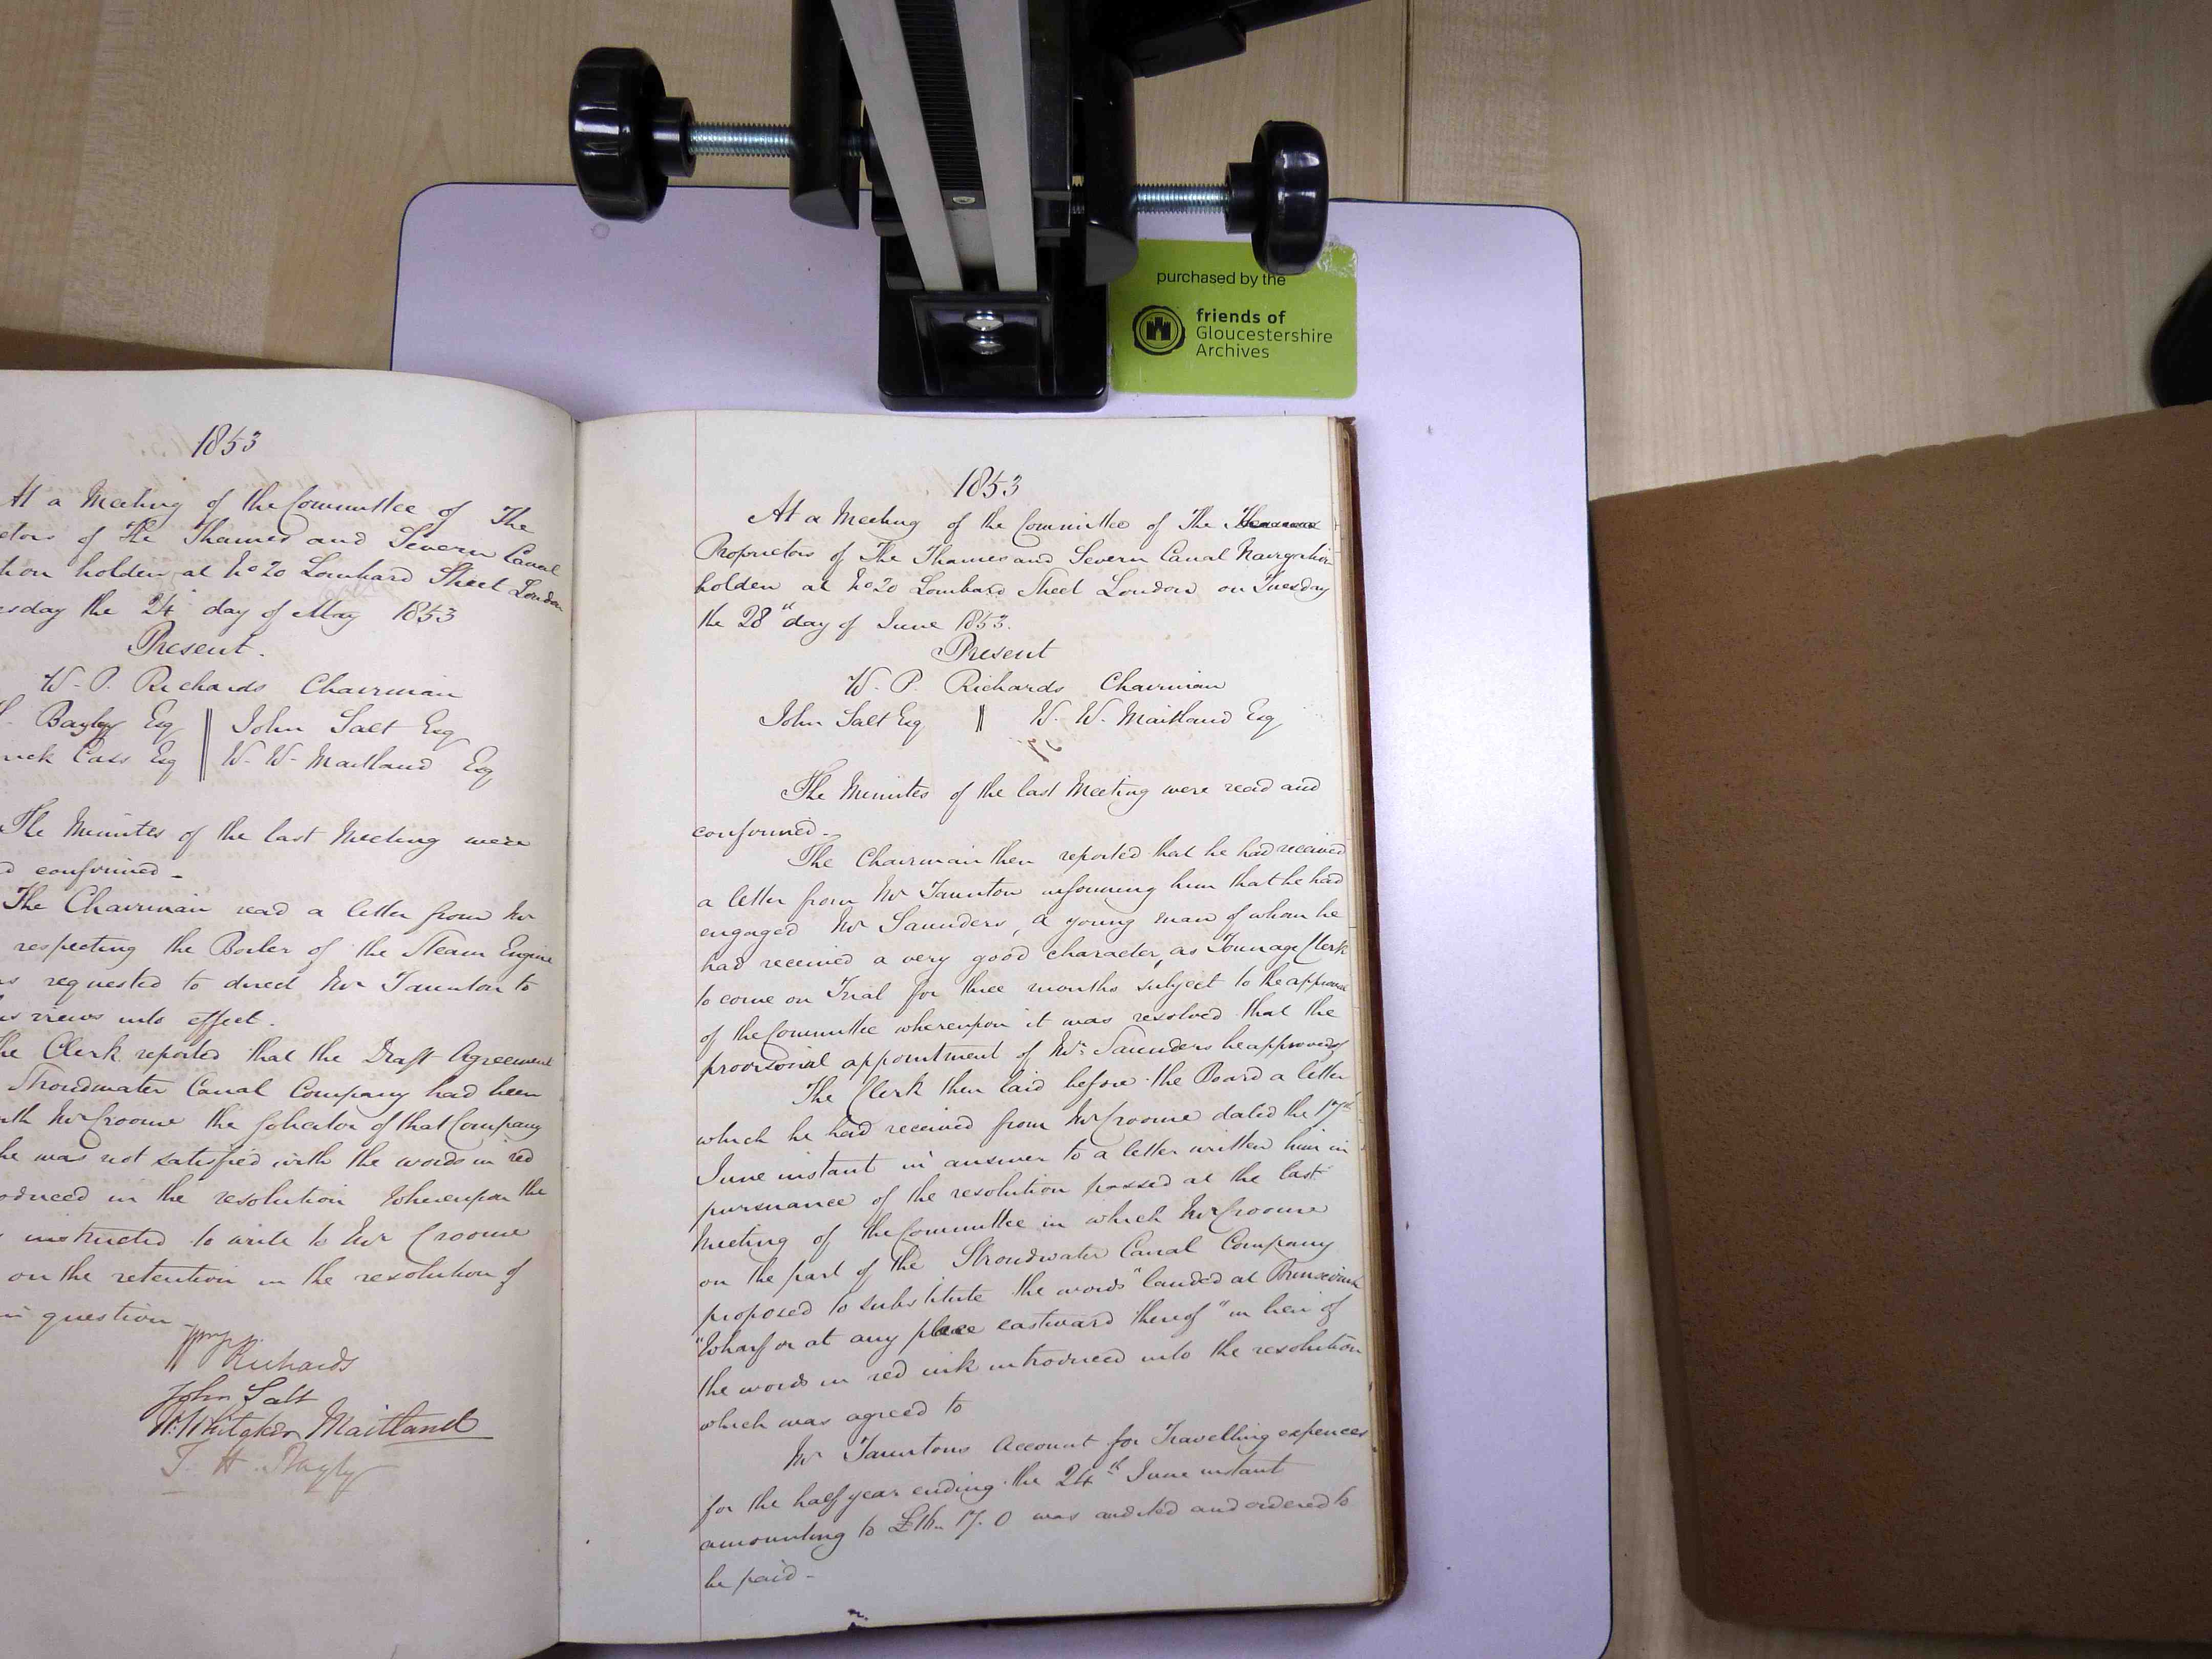 purchased by the
friends of
Gloucestershire
Archives
1853
At a Meeting of the Committee of The
etors of The Thames and Severn Canal
tion holden at No 20 Lombard Street London
esday the 24th day of May 1853
Present.
W. P. Richards Chairman
Bayly Esq || John Salt Esq
rick Cass Esq || W. W. Maitland Esq
The Minutes of the last Meeting were
d confirmed -
The Chairman read a letter from Mr
respecting the Boiler of the Steam Engine
s requested to direct Mr Taunton to
is views into effect.
he Clerk reported that the Draft Agreement
Stroudwater Canal Company had been
ith Mr Croome the Solicitor of that Company
he was not satisfied with the words in red
oduced in the resolution Whereupon the
instructed to write to Mr Croome
on the retention in the resolution of
in question -
Wm P Richards
John Salt
W. Whitaker Maitland
T. H. Bayly
1853
At a Meeting of the Committee of The
Proprietors of The Thames and Severn Canal Navigation
holden at No 20 Lombard Street London on Tuesday
the 28th day of June 1853.
Present
W. P. Richards Chairman
John Salt Esq || W. W. Maitland Esq
The Minutes of the last Meeting were read and
confirmed -
The Chairman then reported that he had received
a letter from Mr Taunton informing him that he had
engaged Mr Saunders, a young man of whom he
had received a very good character, as Tonnage Clerk
to come on Trial for three months subject to the approval
of the Committee whereupon it was resolved that the
provisional appointment of Mr. Saunders be approved of
The Clerk then laid before the Board a letter
which he had received from Mr Croome dated the 17th
June instant in answer to a letter written him in
pursuance of the resolution passed at the last
Meeting of the Committee in which Mr Croome
on the part of the Stroudwater Canal Company
proposed to substitute the words "landed at Brimscomb
"Wharf or at any place eastward thereof" in lieu of
the words in red ink introduced into the resolution
which was agreed to
Mr Tauntons Account for Travelling expences
for the half year ending the 24th June instant
amounting to £16. 17. 0 was audited and ordered to
be paid -